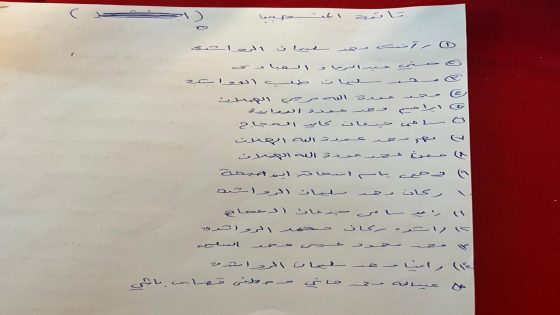 قائمة المنتسبين ( )
١) رأفت محمد سليمان الرواشدة
٢) حسني عبدالرزاق العبادي
٣) محمد سليمان طلب الرواشدة
٤) محمد عودة الله مرجي الهملان
٥) ابراهيم محمد عودة
٦) سامي جدعان الحجاج
٧) محمد عودة الله الهملان
٨) معن محمد عودة الله الهملان
٩) باسم اسحاق ابو
١٠) ركان محمد سليمان الرواشدة
١١) رامي سامي جدعان الحجاج
١٢) راشد ركان محمد الرواشدة
١٣) محمد محمود عيسى محمد
١٤) رانيا محمد سليمان الرواشدة
١٥) عبدالله محمد هاني مصطفى قصاب باشي